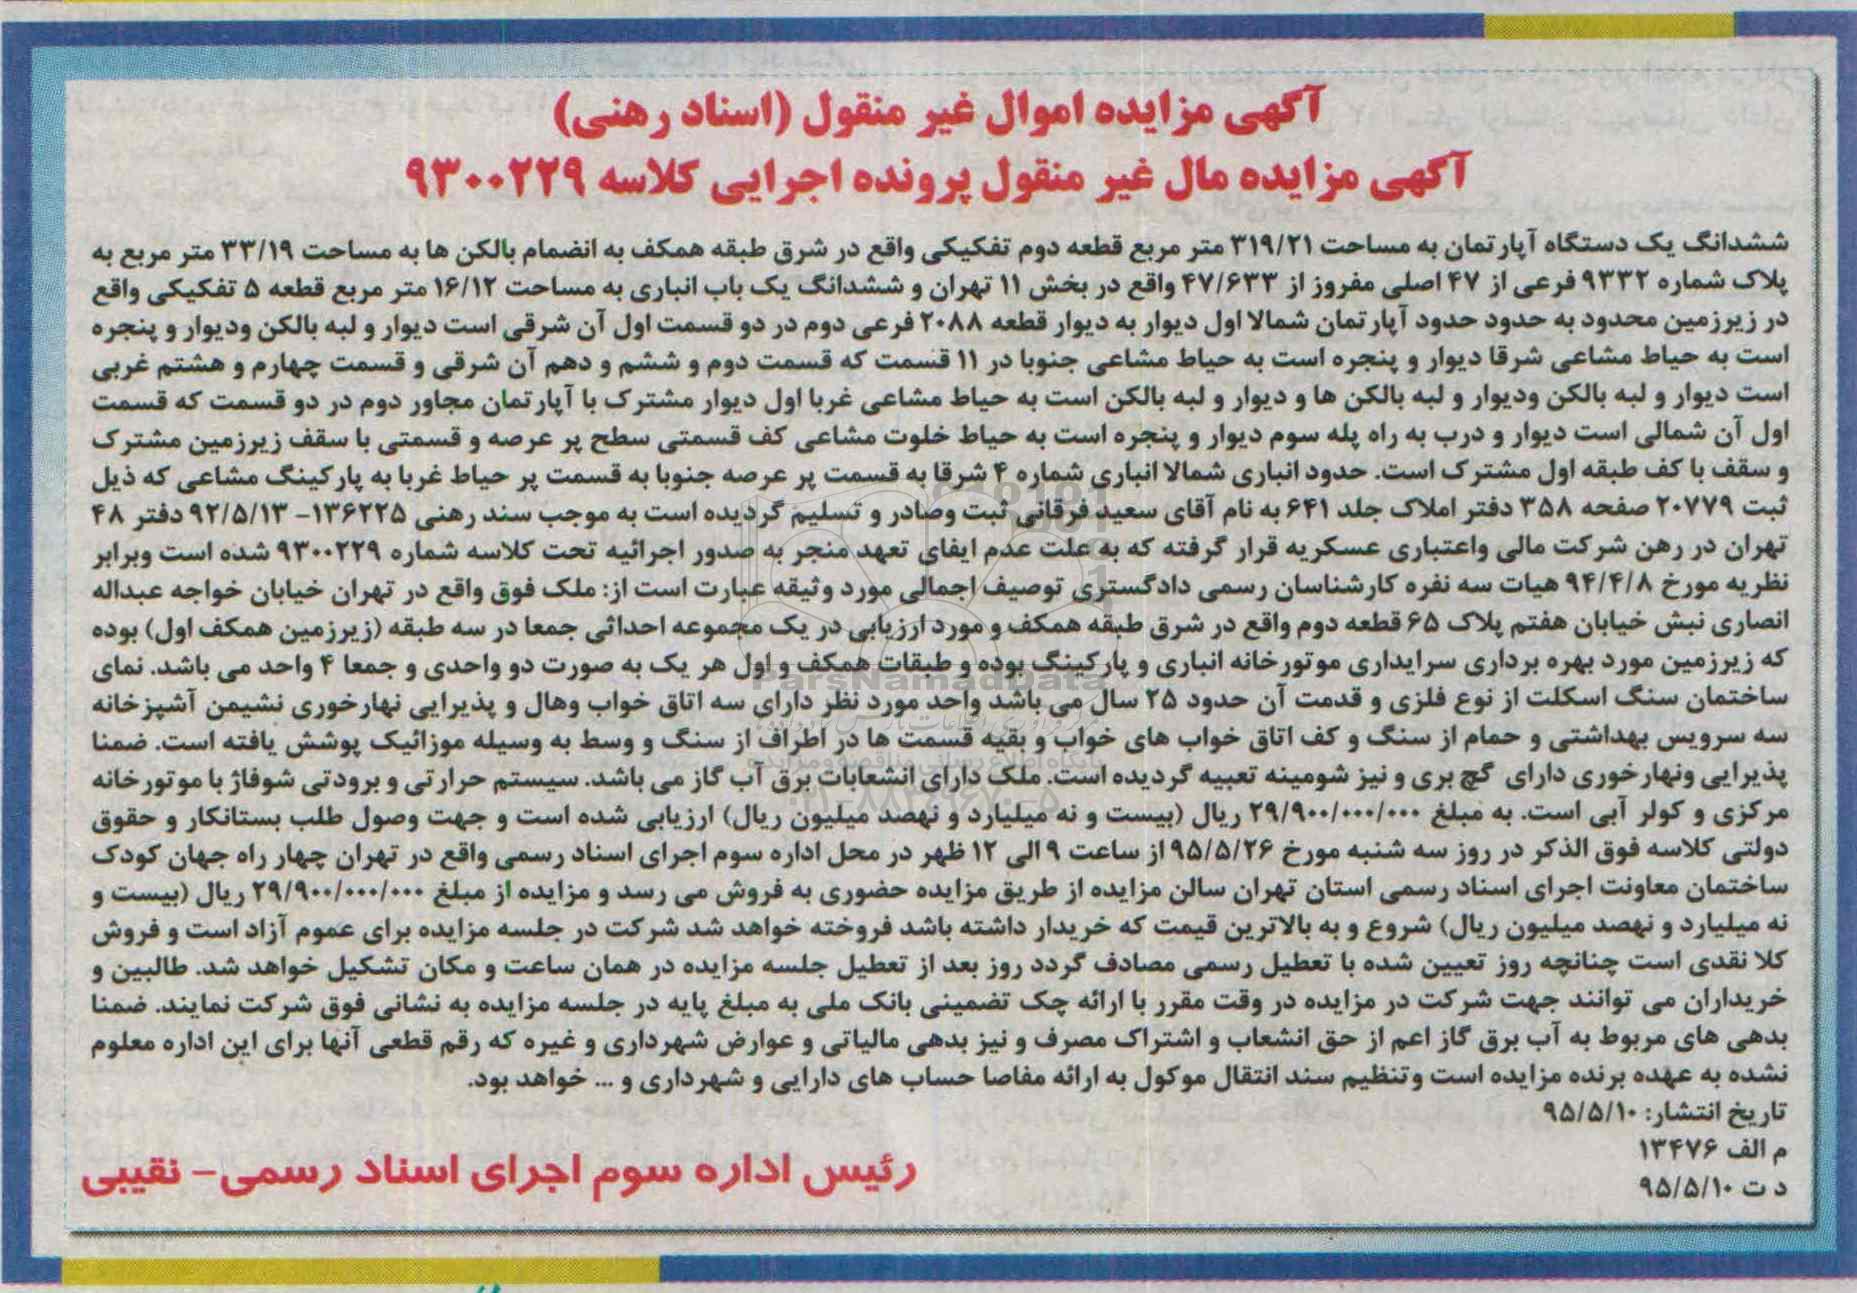 آگهی مزایده اموال غیر منقول (اسناد رهنی)
آگهی مزایده مال غیر منقول پرونده اجرایی کلاسه ۹۳۰۰۲۲۹
ششدانگ یک دستگاه آپارتمان به مساحت ۳۱۹/۲۱ متر مربع قطعه دوم تفکیکی واقع در شرق طبقه همکف به انضمام بالکن ها به مساحت ۳۳/۱۹ متر مربع به
پلاک شماره ۹۳۳۲ فرعی از ۴۷ اصلی مفروز از ۴۷/۶۳۳ واقع در بخش ۱۱ تهران و ششدانگ یک باب انباری به مساحت ۱۶/۱۲ متر مربع قطعه ۵ تفکیکی واقع
در زیرزمین محدود به حدود حدود آپارتمان شمالا اول دیوار به دیوار قطعه ۲۰۸۸ فرعی دوم در دو قسمت اول آن شرقی است دیوار و لبه بالکن ودیوار و پنجره
است به حیاط مشاعی شرقا دیوار و پنجره است به حیاط مشاعی جنوبا در ۱۱ قسمت که قسمت دوم و ششم و دهم آن شرقی و قسمت چهارم و هشتم غربی
است دیوار و لبه بالکن ودیوار و لبه بالکن ها و دیوار و لبه بالکن است به حیاط مشاعی غربا اول دیوار مشترک با آپارتمان مجاور دوم در دو قسمت که قسمت
اول آن شمالی است دیوار و درب به راه پله سوم دیوار و پنجره است به حیاط خلوت مشاعی کف قسمتی سطح پر عرصه و قسمتی با سقف زیرزمین مشترک
و سقف با کف طبقه اول مشترک است. حدود انباری شمالا انباری شماره ۴ شرقا به قسمت پر عرصه جنوبا به قسمت پر حیاط غربا به پارکینگ مشاعی که ذیل
ثبت ۲۰۷۷۹ صفحه ۳۵۸ دفتر املاک جلد ۶۴۱ به نام آقای سعید فرقانی ثبت وصادر و تسلیم گردیده است به موجب سند رهنی ۱۳۶۲۲۵- ۹۲/۵/۱۳ دفتر ۴۸
تهران در رهن شرکت مالی واعتباری عسکریه قرار گرفته که به علت عدم ایفای تعهد منجر به صدور اجرائیه تحت کلاسه شماره ۹۳۰۰۲۲۹ شده است وبرابر
نظریه مورخ ۹۴/۴/۸ هیات سه نفره کارشناسان رسمی دادگستری توصیف اجمالی مورد وثیقه عبارت است از: ملک فوق واقع در تهران خیابان خواجه عبداله
انصاری نبش خیابان هفتم پلاک ۶۵ قطعه دوم واقع در شرق طبقه همکف و مورد ارزیابی در یک مجموعه احداثی جمعا در سه طبقه (زیرزمین همکف اول) بوده
که زیرزمین مورد بهره برداری سرایداری موتورخانه انباری و پارکینگ بوده و طبقات همکف و اول هر یک به صورت دو واحدی و جمعا ۴ واحد می باشد. نمای
ساختمان سنگ اسکلت از نوع فلزی و قدمت آن حدود ۲۵ سال می باشد واحد مورد نظر دارای سه اتاق خواب وهال و پذیرایی نهارخوری نشیمن آشپزخانه
سه سرویس بهداشتی و حمام از سنگ و کف اتاق خواب های خواب و بقیه قسمت ها در اطراف از سنگ و وسط به وسیله موزائیک پوشش یافته است. ضمنا
پذیرایی ونهارخوری دارای گچ بری و نیز شومینه تعبیه گردیده است. ملک دارای انشعابات برق آب گاز می باشد. سیستم حرارتی و برودتی شوفاژ با موتورخانه
مرکزی و کولر آبی است. به مبلغ ۲۹/۹۰۰/۰۰۰/۰۰۰ ریال (بیست و نه میلیارد و نهصد میلیون ریال) ارزیابی شده است و جهت وصول طلب بستانکار و حقوق
دولتی کلاسه فوق الذکر در روز سه شنبه مورخ ۹۵/۵/۲۶ از ساعت ۹ الی ۱۲ ظهر در محل اداره سوم اجرای اسناد رسمی واقع در تهران چهار راه جهان کودک
ساختمان معاونت اجرای اسناد رسمی استان تهران سالن مزایده از طریق مزایده حضوری به فروش می رسد و مزایده از مبلغ ۲۹/۹۰۰/۰۰۰/۰۰۰ ریال (بیست و
نه میلیارد و نهصد میلیون ریال) شروع و به بالاترین قیمت که خریدار داشته باشد فروخته خواهد شد شرکت در جلسه مزایده برای عموم آزاد است و فروش
کلا نقدی است چنانچه روز تعیین شده با تعطیل رسمی مصادف گردد روز بعد از تعطیل جلسه مزایده در همان ساعت و مکان تشکیل خواهد شد. طالبین و
خریداران می توانند جهت شرکت در مزایده در وقت مقرر با ارائه چک تضمینی بانک ملی به مبلغ پایه در جلسه مزایده به نشانی فوق شرکت نمایند. ضمنا
بدهی های مربوط به آب برق گاز اعم از حق انشعاب و اشتراک مصرف و نیز بدهی مالیاتی و عوارض شهرداری و غیره که رقم قطعی آنها برای این اداره معلوم
نشده به عهده برنده مزایده است وتنظیم سند انتقال موکول به ارائه مفاصا حساب های دارایی و شهرداری و ... خواهد بود.
تاریخ انتشار: ۹۵/۵/۱۰
م الف ۱۳۴۷۶
د ت ۹۵/۵/۱۰
رئیس اداره سوم اجرای اسناد رسمی- نقیبی
ParsNamadData
پایگاه اطلاع رسانی مناقصه و مزایده
۰۲۱-۸۸۳۴۹۶۷۰-۵